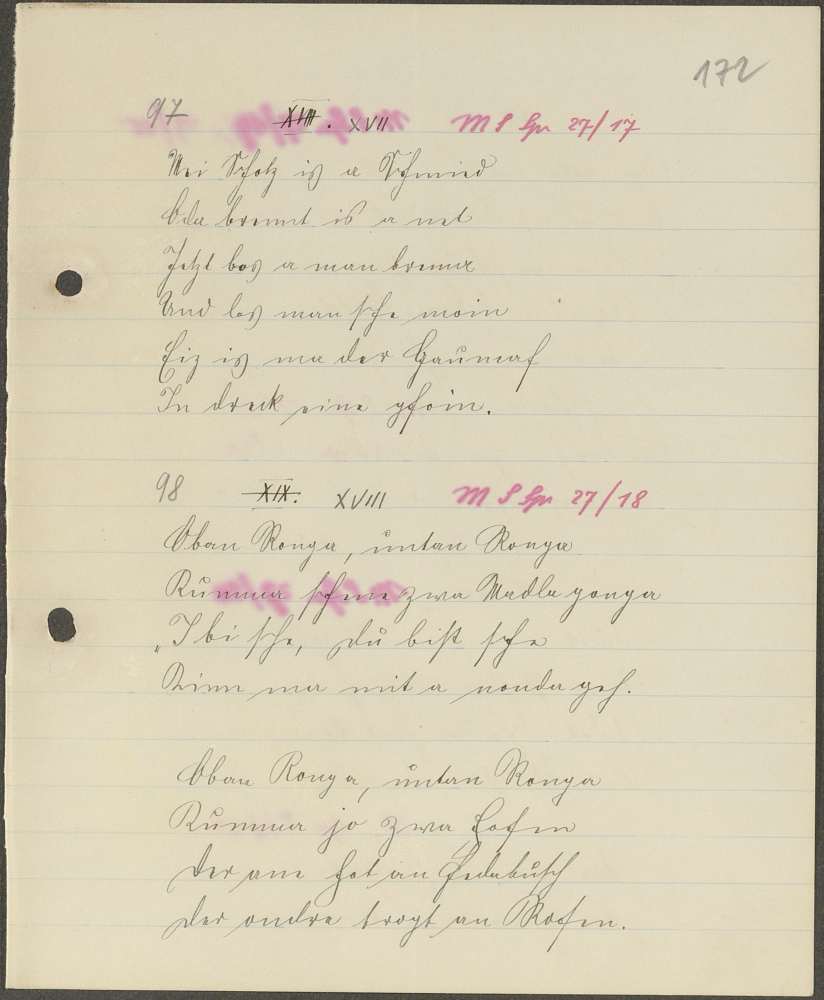 172
97 XIII. XVII M S Gpr 27/17
Mei Schotz is a Schmied
Oba brennt is a net
Jetzt los a man brenna
Und los man sche moin
Eiz is ma der Gaumaf
In dreck eine gfoin.
98 XIX. XVIII M S Gpr 27/18
Oban Ronga, untan Ronga
Kumma schene zwa Madla gonga
"I bi sche, du bist sche
Kinn ma mit a nonda geh.
Oban Ronga, untan Ronga
Kumma jo zwa
Der ane hot an Fedabusch
Der ondre trogt an